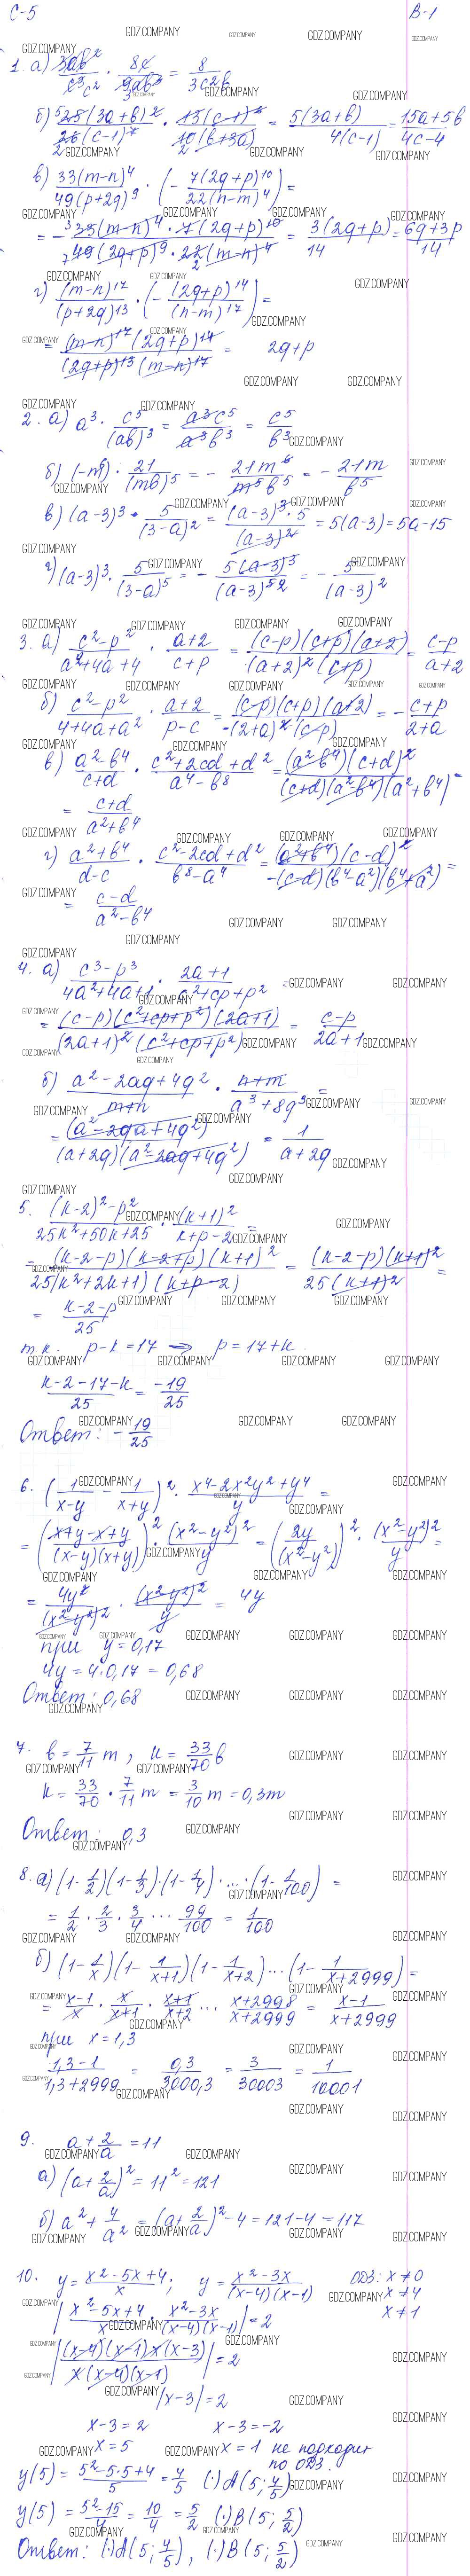 С-5 В-1
1. а) 3ab²/c³ · 8c/9ab³ = 8/3c²b
б) 25(3a+b)²/26(c-1)² · 13(c-1)/10(b+3a) = 5(3a+b)/4(c-1) = 15a+5b/4c-4
в) 33(m-n)⁴/49(p+2q)⁹ · (- 7(2q+p)¹⁰/22(n-m)⁴) =
= - 33(m-n)⁴ · 7(2q+p)¹⁰/49(2q+p)⁹ · 22(m-n)⁴ = 3(2q+p)/14 = 6q+3p/14
г) (m-n)¹⁷/(p+2q)¹³ · (- (2q+p)¹⁴/(n-m)¹⁷) =
= (m-n)¹⁷(2q+p)¹⁴/(2q+p)¹³(m-n)¹⁷ = 2q+p
2. а) a³ · c⁵/(ab)³ = a³c⁵/a³b³ = c⁵/b³
б) (-m⁶) · 21/(mb)⁵ = - 21m⁶/m⁵b⁵ = - 21m/b⁵
в) (a-3)³ · 5/(3-a)² = (a-3)³·5/(a-3)² = 5(a-3) = 5a-15
г) (a-3)³ · 5/(3-a)⁵ = - 5(a-3)³/(a-3)⁵ = - 5/(a-3)²
3. а) c²-p²/a²+4a+4 · a+2/c+p = (c-p)(c+p)(a+2)/(a+2)²(c+p) = c-p/a+2
б) c²-p²/4+4a+a² · a+2/p-c = (c-p)(c+p)(a+2)/-(2+a)²(c-p) = - c+p/2+a
в) a²-b⁴/c+d · c²+2cd+d²/a⁴-b⁸ = (a²-b⁴)(c+d)²/(c+d)(a²-b⁴)(a²+b⁴) =
= c+d/a²+b⁴
г) a²+b⁴/d-c · c²-2cd+d²/b⁸-a⁴ = (a²+b⁴)(c-d)²/-(c-d)(b⁴-a²)(b⁴+a²) =
= c-d/a²-b⁴
4. а) c³-p³/4a²+4a+1 · 2a+1/c²+cp+p² =
= (c-p)(c²+cp+p²)(2a+1)/(2a+1)²(c²+cp+p²) = c-p/2a+1
б) a²-2aq+4q²/m+n · n+m/a³+8q³ =
= (a²-2qa+4q²)/(a+2q)(a²-2aq+4q²) = 1/a+2q
5. (k-2)²-p²/25k²+50k+25 · (k+1)²/k+p-2 =
= (k-2-p)(k-2+p)(k+1)²/25(k²+2k+1)(k+p-2) = (k-2-p)(k+1)²/25(k+1)² =
= k-2-p/25
т.к. p-k=17 → p=17+k
k-2-17-k/25 = -19/25
Ответ: -19/25
6. (1/x-y - 1/x+y)² · x⁴-2x²y²+y⁴/y =
= (x+y-x+y/(x-y)(x+y))² · (x²-y²)²/y = (2y/(x²-y²))² · (x²-y²)²/y =
= 4y²/(x²-y²)² · (x²-y²)²/y = 4y
при y=0,17
4y = 4·0,17 = 0,68
Ответ: 0,68
7. b = 7/11 m, k = 33/70 b
k = 33/70 · 7/11 m = 3/10 m = 0,3m
Ответ: 0,3
8. а) (1-1/2)(1-1/3)·(1-1/4)· ... ·(1-1/100) =
= 1/2 · 2/3 · 3/4 ... 99/100 = 1/100
б) (1-1/x)(1-1/x+1)(1-1/x+2) ... (1-1/x+2999) =
= x-1/x · x/x+1 · x+1/x+2 ... x+2998/x+2999 = x-1/x+2999
при x=1,3
1,3-1/1,3+2999 = 0,3/3000,3 = 3/30003 = 1/10001
9. a+2/a = 11
а) (a+2/a)² = 11² = 121
б) a²+4/a² = (a+2/a)²-4 = 121-4 = 117
10. y = x²-5x+4/x ; y = x²-3x/(x-4)(x-1) ОДЗ: x≠0
x≠4
x≠1
|x²-5x+4/x · x²-3x/(x-4)(x-1)| = 2
|(x-4)(x-1)x(x-3)/x(x-4)(x-1)| = 2
|x-3| = 2
x-3=2 x-3=-2
x=5 x=1 не подходит
по ОДЗ.
y(5) = 5²-5·5+4/5 = 4/5 (·)A(5; 4/5)
y(5) = 5²-15/4 = 10/4 = 5/2 (·)B(5; 5/2)
Ответ: (·)A(5; 4/5), (·)B(5; 5/2)
GDZ.COMPANY